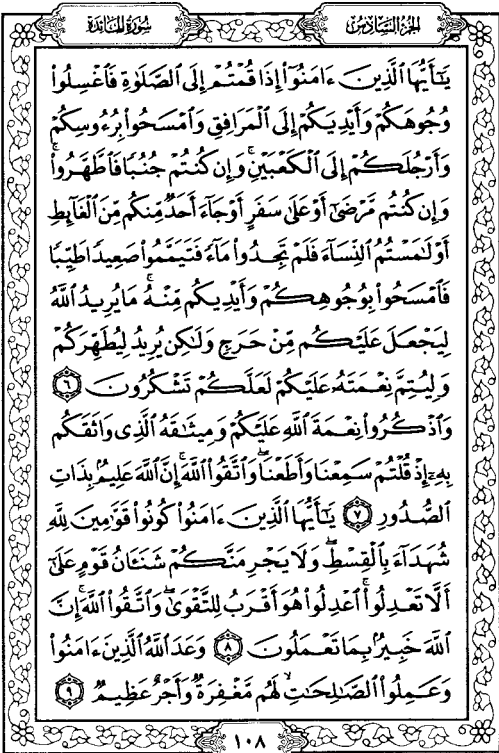 سُورَةُ المَائـِدَة
الجُزءُ السَّادِسُ
يَـٰٓأَيُّهَا ٱلَّذِينَ ءَامَنُوٓاْ إِذَا قُمۡتُمۡ إِلَى ٱلصَّلَوٰةِ فَٱغۡسِلُواْ
وُجُوهَكُمۡ وَأَيۡدِيَكُمۡ إِلَى ٱلۡمَرَافِقِ وَٱمۡسَحُواْ بِرُءُوسِكُمۡ
وَأَرۡجُلَكُمۡ إِلَى ٱلۡكَعۡبَيۡنِۚ وَإِن كُنتُمۡ جُنُبٗا فَٱطَّهَّرُواْۚ
وَإِن كُنتُم مَّرۡضَىٰٓ أَوۡ عَلَىٰ سَفَرٍ أَوۡ جَآءَ أَحَدٞ مِّنكُم مِّنَ ٱلۡغَآئِطِ
أَوۡ لَٰمَسۡتُمُ ٱلنِّسَآءَ فَلَمۡ تَجِدُواْ مَآءٗ فَتَيَمَّمُواْ صَعِيدٗا طَيِّبٗا
فَٱمۡسَحُواْ بِوُجُوهِكُمۡ وَأَيۡدِيكُم مِّنۡهُۚ مَا يُرِيدُ ٱللَّهُ
لِيَجۡعَلَ عَلَيۡكُم مِّنۡ حَرَجٖ وَلَٰكِن يُرِيدُ لِيُطَهِّرَكُمۡ
وَلِيُتِمَّ نِعۡمَتَهُۥ عَلَيۡكُمۡ لَعَلَّكُمۡ تَشۡكُرُونَ ٦
وَٱذۡكُرُواْ نِعۡمَةَ ٱللَّهِ عَلَيۡكُمۡ وَمِيثَٰقَهُ ٱلَّذِي وَاثَقَكُم
بِهِۦٓ إِذۡ قُلۡتُمۡ سَمِعۡنَا وَأَطَعۡنَاۖ وَٱتَّقُواْ ٱللَّهَۚ إِنَّ ٱللَّهَ عَلِيمُۢ بِذَاتِ
ٱلصُّدُورِ ٧ يَـٰٓأَيُّهَا ٱلَّذِينَ ءَامَنُواْ كُونُواْ قَوَّٰمِينَ لِلَّهِ
شُهَدَآءَ بِٱلۡقِسۡطِۖ وَلَا يَجۡرِمَنَّكُمۡ شَنَـَٔانُ قَوۡمٍ عَلَىٰٓ
أَلَّا تَعۡدِلُواْۚ ٱعۡدِلُواْ هُوَ أَقۡرَبُ لِلتَّقۡوَىٰۖ وَٱتَّقُواْ ٱللَّهَۚ إِنَّ
ٱللَّهَ خَبِيرُۢ بِمَا تَعۡمَلُونَ ٨ وَعَدَ ٱللَّهُ ٱلَّذِينَ ءَامَنُواْ
وَعَمِلُواْ ٱلصَّـٰلِحَٰتِ لَهُم مَّغۡفِرَةٞ وَأَجۡرٌ عَظِيمٞ ٩
١٠٨